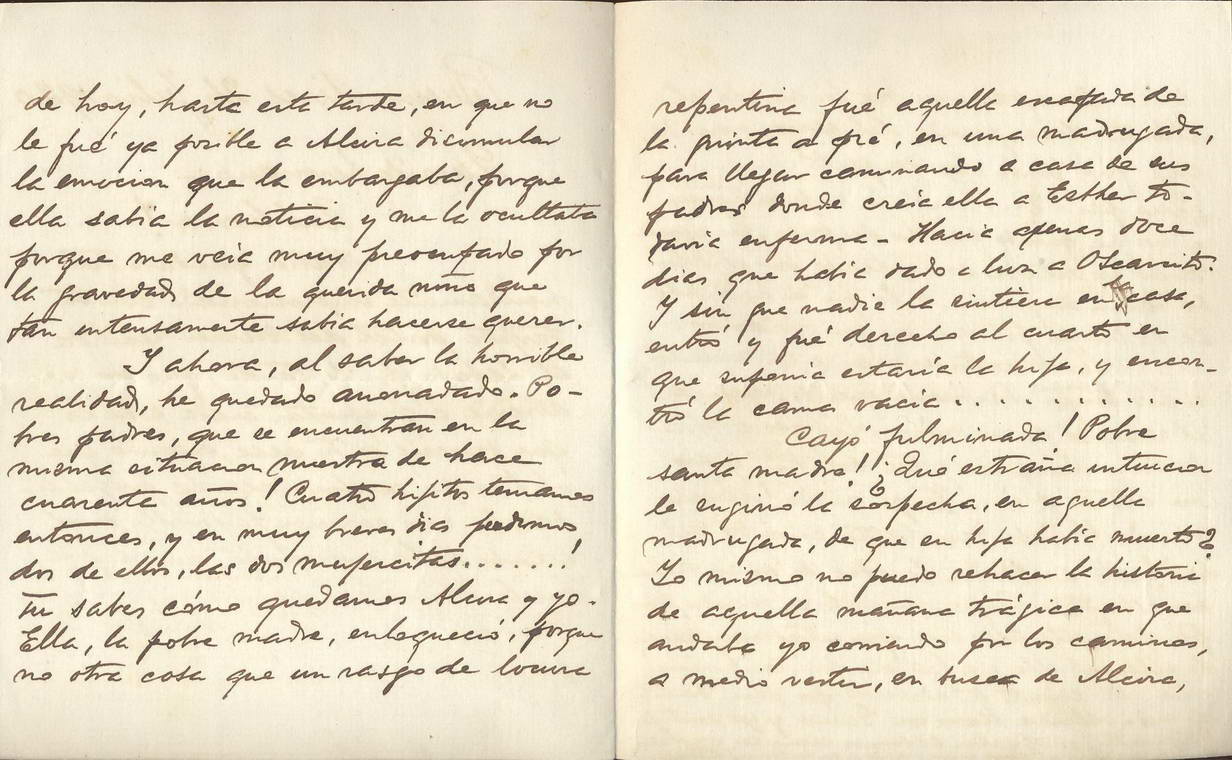 de hoy, hasta esta tarde, en que no
le fué ya posible a Alcira disimular
la emocion que la embargaba, porque
ella sabia la noticia y me la ocultaba
porque me veia muy preocupado por
la gravedad de la querida niño que
tan intensamente sabia hacerse querer.
Y ahora, al saber la horrible
realidad, he quedado anonadado. Po-
bres padres, que se encuentran en la
misma situacion nuestra de hace
cuarenta años! Cuatro hijitos teniamos
entonces, y en muy breves dias perdimos
dos de ellos, las dos mujercitas.......!
Tu sabes cómo quedamos Alcira y yo.
Ella, la pobre madre, enloqueció, porque
no otra cosa que un rasgo de locura
repentina fué aquella escapada de
la quinta a pié, en una madrugada,
para llegar caminando a casa de sus
padres donde creia ella a Esther to-
davia enferma - Hacia apenas doce
dias que habia dado a luz a Oscarcito.
Y sin que nadie la sintiera en casa,
entró y fué derecho al cuarto en
que suponia estaria la hija, y encon-
tró la cama vacia . . . . . . . . . . . .
Cayó fulminada! Pobre
santa madre! ¿Qué estraña intuicion
le sugirió la sospecha, en aquella
madrugada, de que su hija habia muerto?
Yo mismo no puedo rehacer la historia
de aquella mañana trágica en que
andaba yo corriendo por los caminos,
a medio vestir, en busca de Alcira,